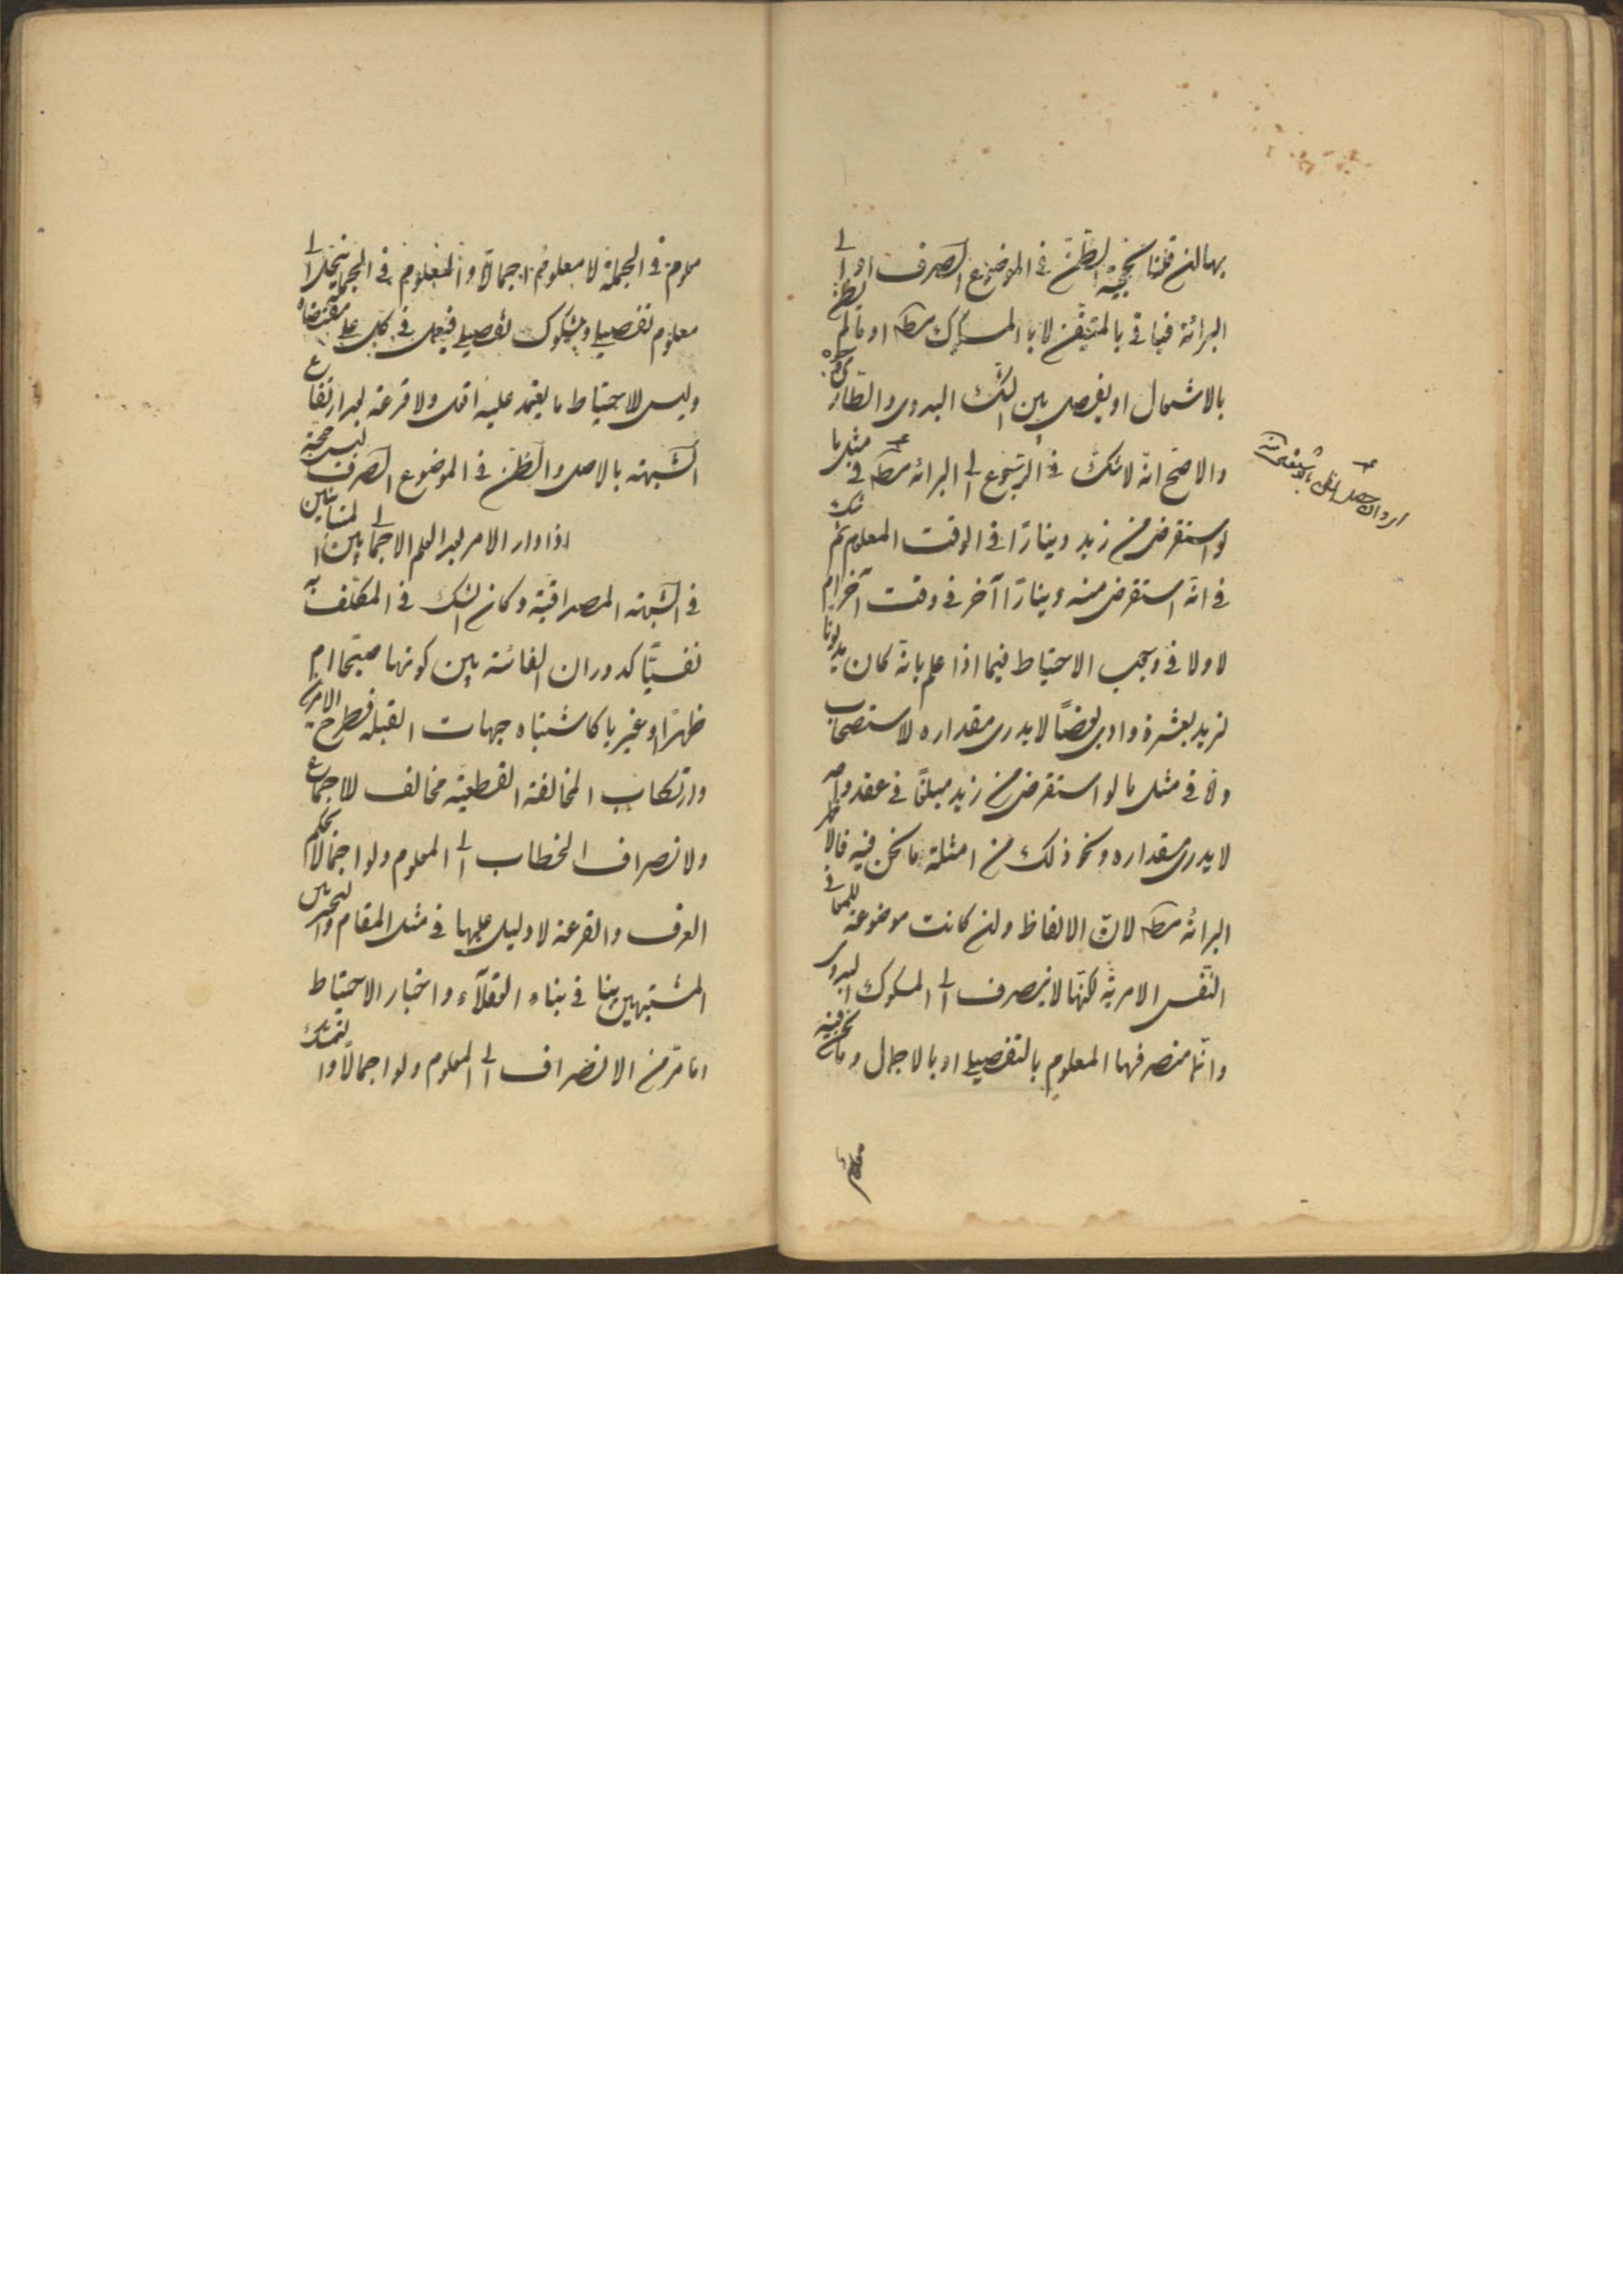 بها ان قلنا بحجية الظن في الموضوع الصرف او الى
البرائة فياتي بالمتيقن لا بالمشكوك مط او ما لم يظن
بالاشتمال او يفصل بين الشك البدوى والطارى
والاصح انه لا شك في الرجوع الى البرائة مط في مثل ما
لو استقرض من زيد دينارًا في الوقت المعلوم ثم شك
في انه استقرض منه دينارًا آخر في وقت آخر ام
لا ولا في وجوب الاحتياط فيما اذا علم بانه كان مديونا
لزيد بعشرة وادى بعضًا لا يدرى مقداره للاستصحاب
واما في مثل ما لو استقرض من زيد مبلغًا في عقد واحد
لا يدرى مقداره ونحو ذلك من امثلة ما نحن فيه فالاظهر
البرائة مط لان الالفاظ وان كانت موضوعة للمعاني
النفس الامرية لكنها لا ينصرف الى المشكوك البدوى
وانما منصرفها المعلوم بالتفصيل او بالاجمال وما نحن فيه
معلوم في الجملة لا معلوم اجمالًا والمعلوم في الجملة ينحل الى
معلوم تفصيلي ومشكوك تفصيلي فيعمل في كل على مقتضاه
وليس للاحتياط ما يعتمد عليه اقل ولا قرعة بعد ارتفاع
الشبهة بالاصل والظن في الموضوع الصرف ليس حجة
اذا دار الامر بعد العلم الاجمالى بين المتباينين
في الشبهة المصداقية وكان الشك في المكلف به
نفسيًا كدوران الفائتة بين كونها صبحًا ام
ظهرًا او غيريا كاشتباه جهات القبلة فطرح الامرين
وارتكاب المخالفة القطعية مخالف للاجماع
ولانصراف الخطاب الى المعلوم ولو اجمالا بحكم
العرف والقرعة لا دليل عليها في مثل المقام والتخيير بين
المشتبهين ينافي بناء العقلآء واخبار الاحتياط
وما مر من الانصراف الى المعلوم ولو اجمالًا